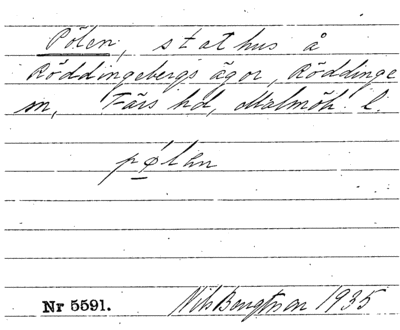 Pölen, stathus å
Röddingebergs ägor, Röddinge
sn, Färs hd, Malmöh. l.
pø̱lən
Nr 5591.
Nils Bengtsson 1935